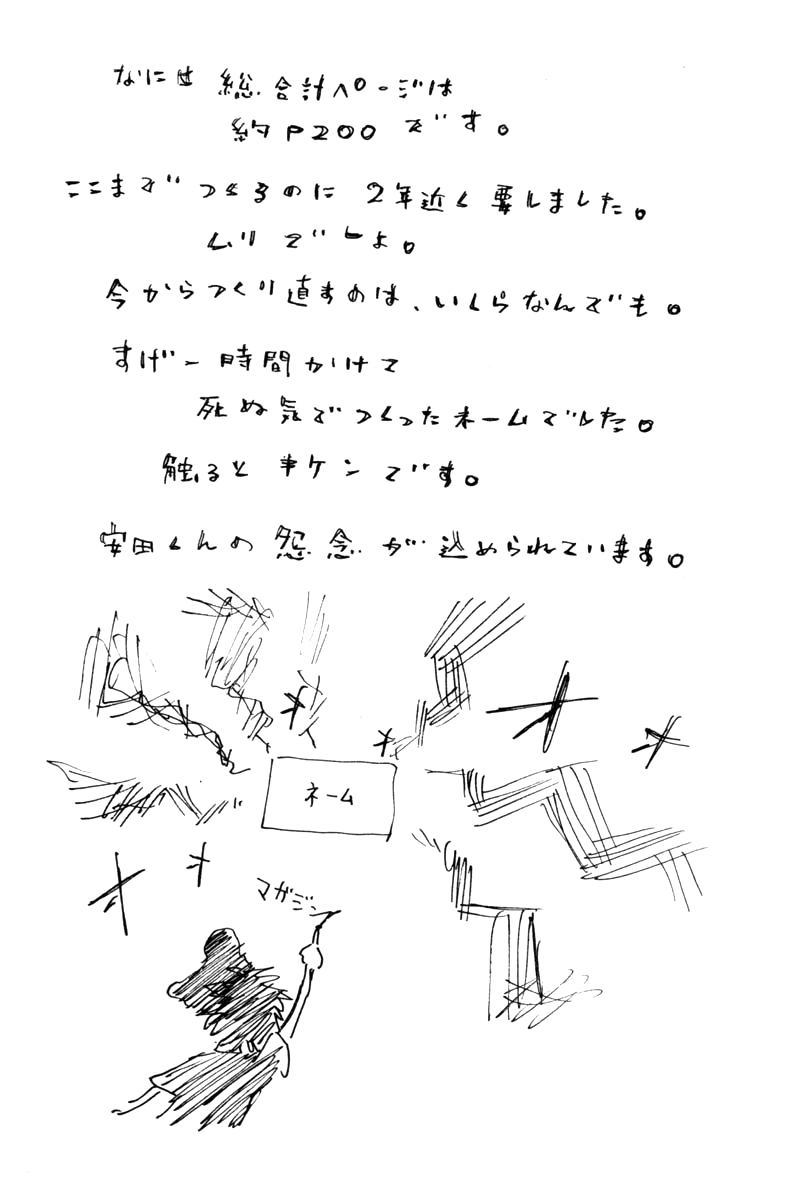 なにせ 総合計ページは
約P200です。
ここまでつくるのに 2年近く要しました。
ムリでしょ。
今からつくり直すのは、いくらなんでも。
すげー時間かけて
死ぬ気でつくったネームでした。
触るとキケンです。
安田くんの怨念が込められています。
ネーム
マガジン